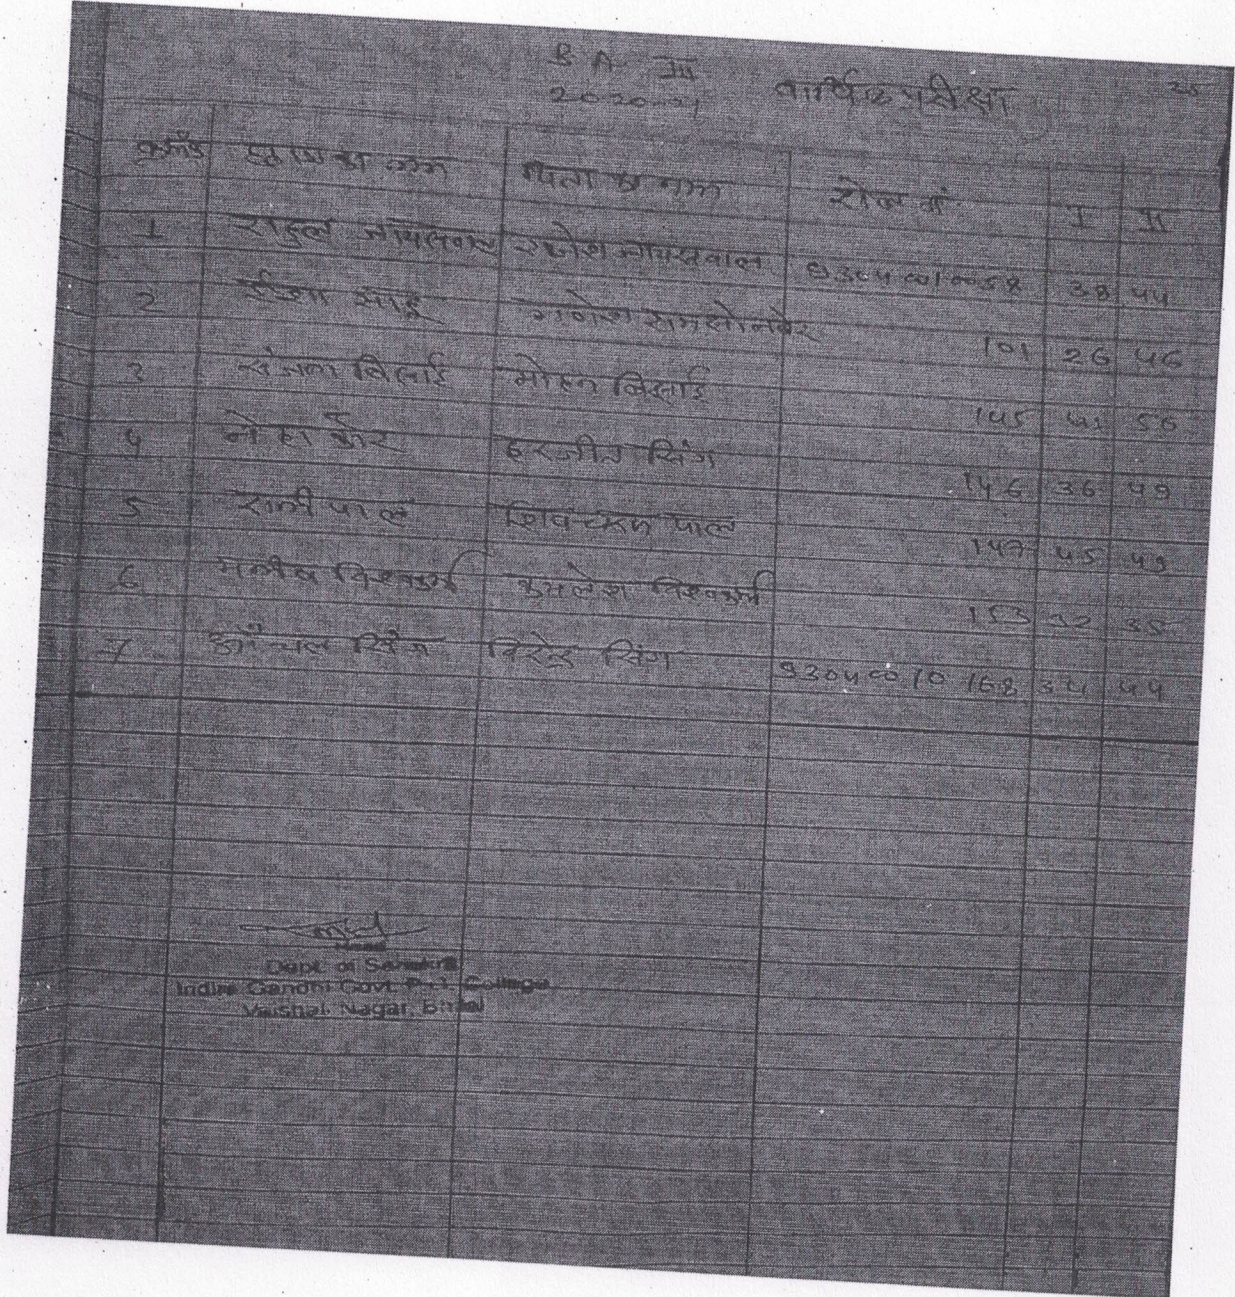 B A III
2020-21 वार्षिक परीक्षा 25
क्रमाँक छात्रा का नाम पिता का नाम रोल नं. I II
1 राहुल जायसवाल राजेश जायसवाल 38 44
2 साहू गणेश राम सोनबेर 101 26 46
3 संजना विसाई मोहन विसाई 145 41 50
4 नेहा कौर हरजीत सिंग 146 36 49
5 रानी पाल शिवचरण पाल 147 45 49
6 मनीष विश्वकर्मा कमलेश विश्वकर्मा 153 35
7 आँचल सिंग विरेन्द्र सिंग 168 34 44
Head
Dept. of Sanskrit
Indira Gandhi Govt. P.G. College
Vaishali Nagar, Bhilai